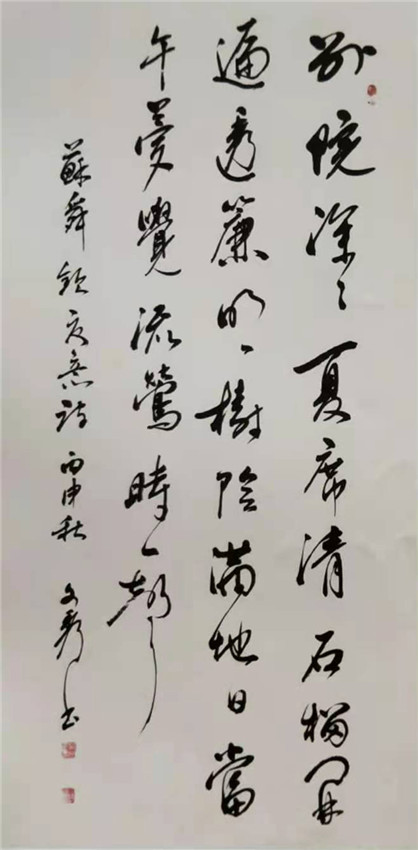 别院深〻夏席清石榴開
遍透簾明樹陰滿地日當
午夢覺流鶯時一聲
蘇舜欽夏意詩 丙申秋 文秀书